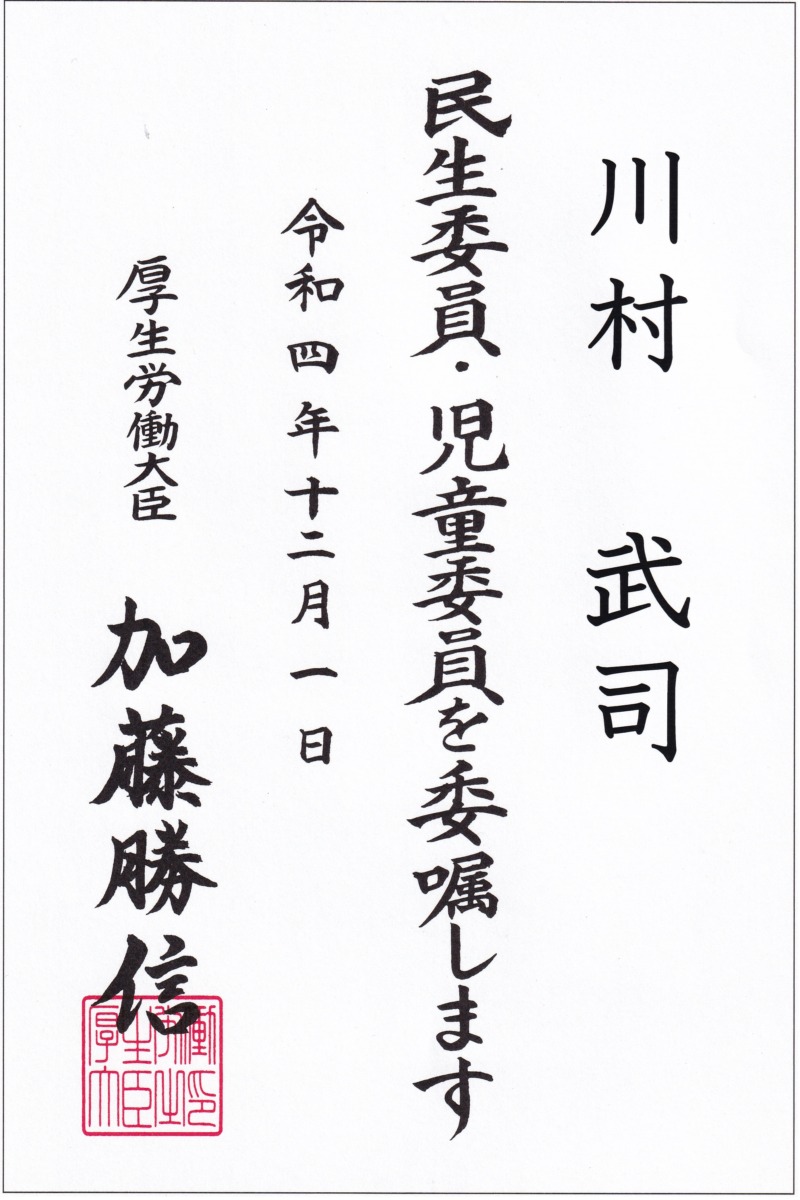 川村 武司
民生委員・児童委員を委嘱します
令和四年十二月一日
厚生労働大臣 加藤勝信
厚生労働大臣印